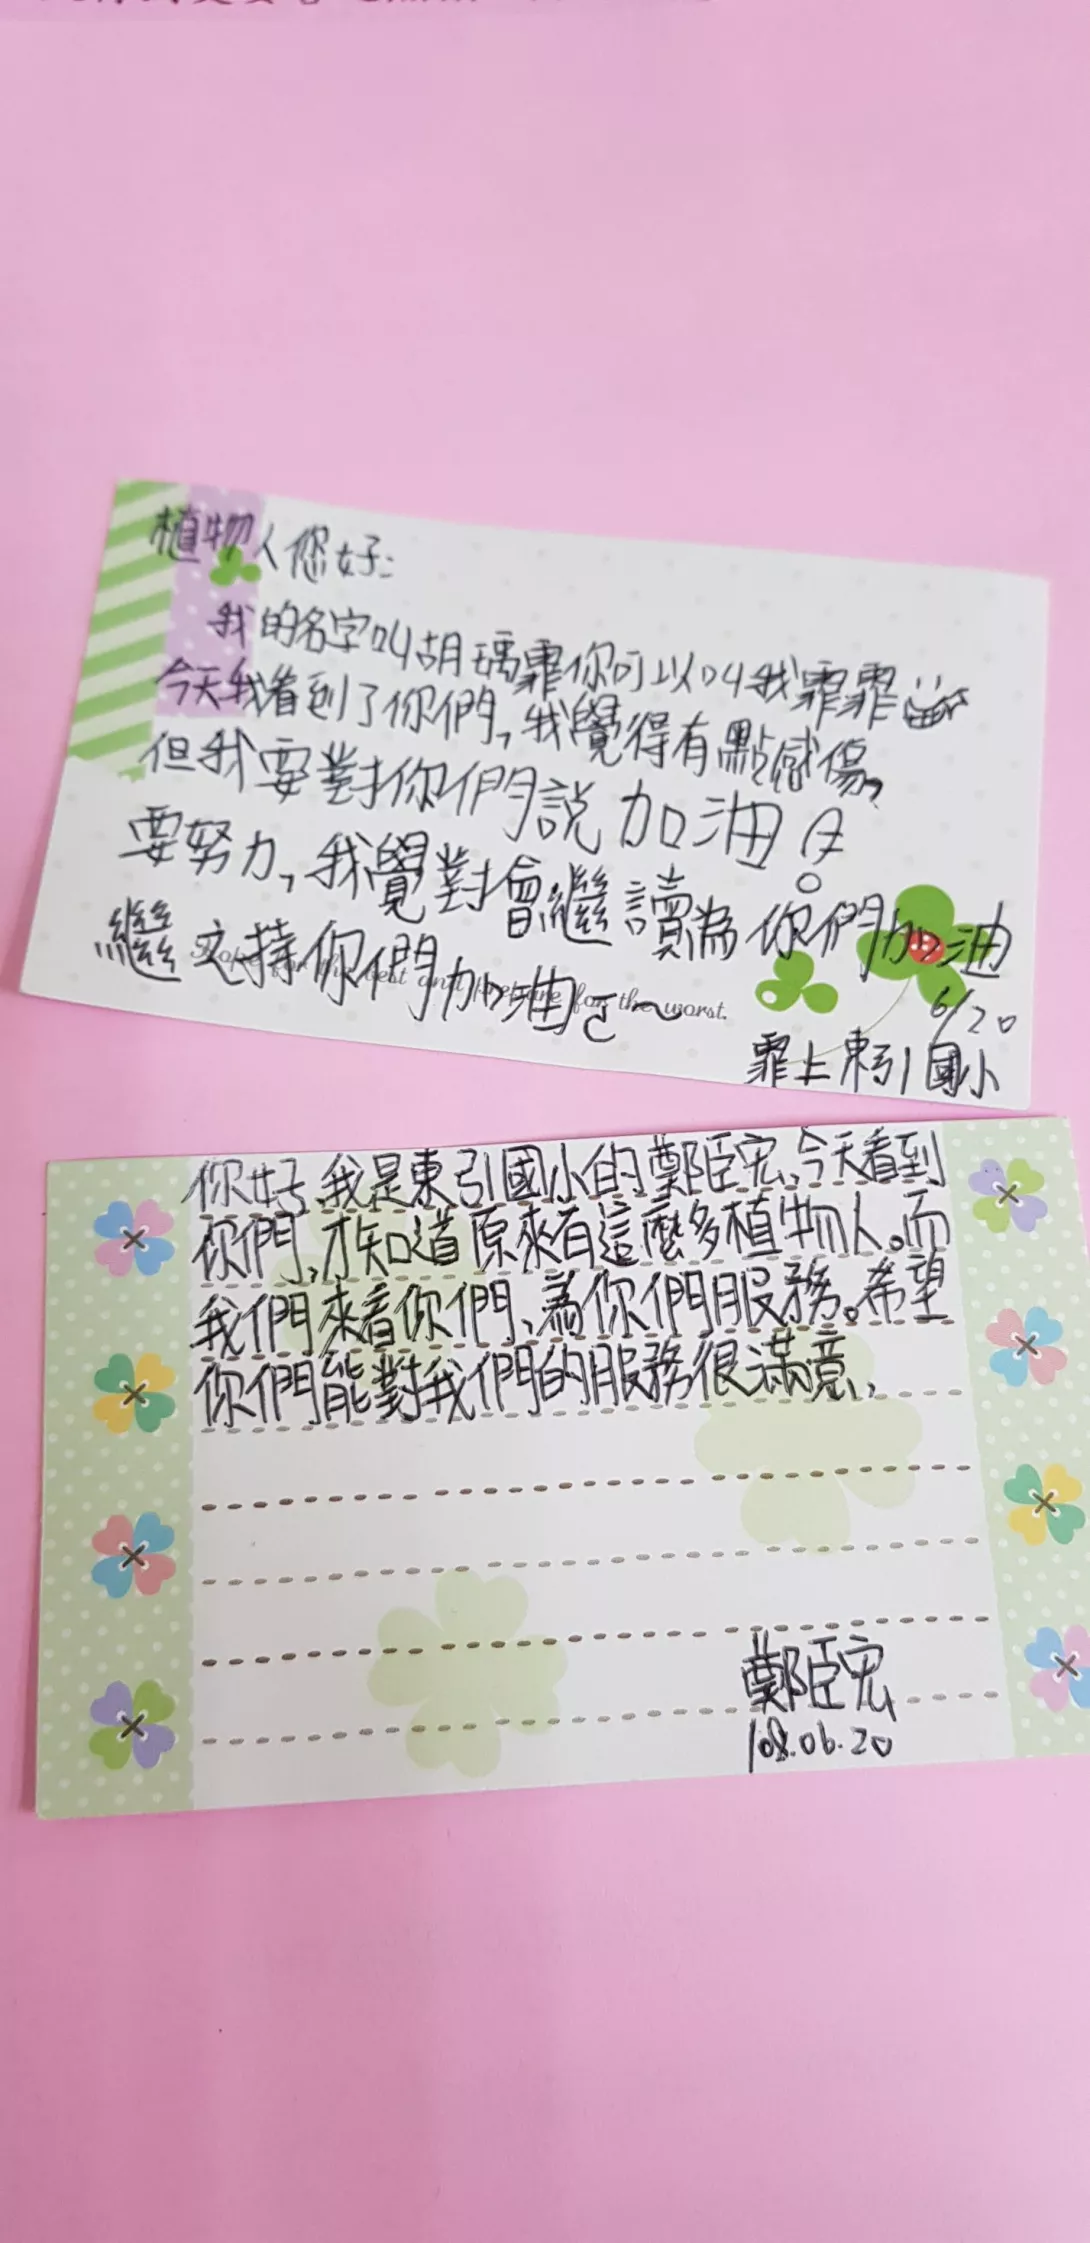 植物人您好:
我的名字叫胡瑀霏你可以叫我霏霏
今天我看到了你們,我覺得有點感傷,
但我要對你們說加油!
要努力,我覺對會繼讀為你們加油
繼支持你們加油ㄛ~
Hope for the best and prepare for the worst.
6/20
霏上東引國小
你好,我是東引國小的鄭臣宏,今天看到
你們,才知道原來有這麼多植物人。而
我們來看你們,為你們服務。希望
你們能對我們的服務很滿意,
鄭臣宏
108.06.20